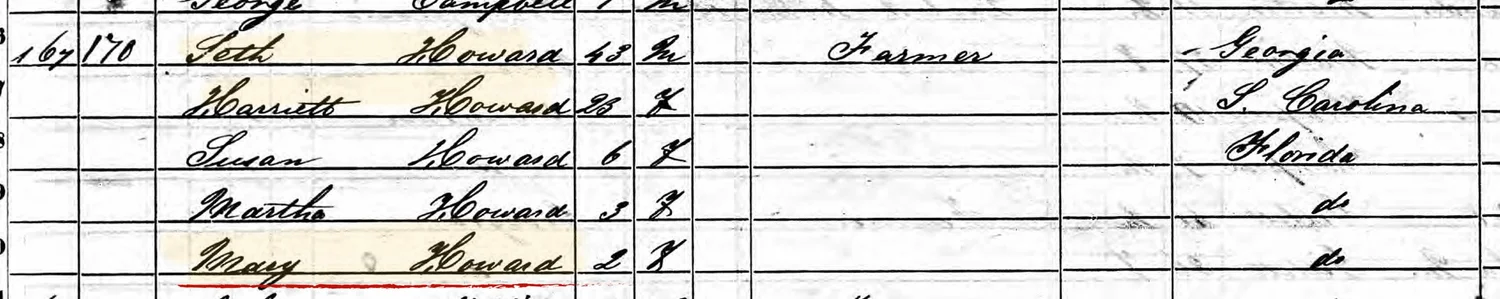 George Campbell 1 M
167 170 Seth Howard 43 M Farmer Georgia
Harriett Howard 23 F S. Carolina
Susan Howard 6 F Florida
Martha Howard 3 F do
Mary Howard 2 F do